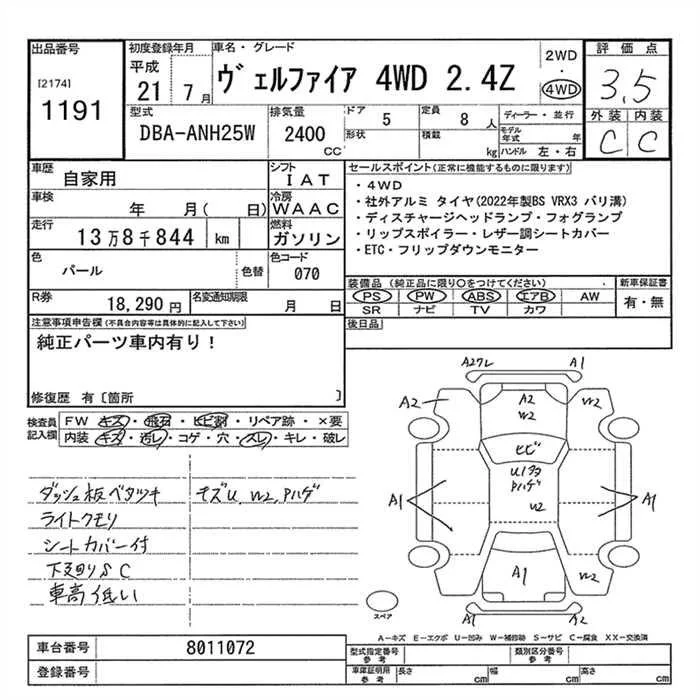 出品番号 初度登録年月 車名・グレード 2WD 評価点
[2174] 平成 ・
1191 21 7月 ヴェルファイア 4WD 2.4Z 4WD 3.5
型式 排気量 ドア 5 定員 8 人 ディーラー・並行 外装 内装
DBA-ANH25W 2400 CC 形状 積載 kg モデル年式 年 C C
ハンドル 左・右
車歴 自家用 シフト IAT セールスポイント(正常に機能するものに限ります)
車検 年 月( 日) 冷房 WAAC ・4WD
走行 13万8千844 km 燃料 ガソリン ・社外アルミ タイヤ(2022年製BS VRX3 バリ溝)
・ディスチャージヘッドランプ・フォグランプ
・リップスポイラー・レザー調シートカバー
・ETC・フリップダウンモニター
色 パール 色替 色コード 070
装備品(純正品に限り○をつけてください) 新車保証書
R券 18,290円 名変通知期限 月 日 PS PW ABS エアB AW 有・無
SR ナビ TV カワ
注意事項申告欄(不具合内容等は具体的に記入して下さい) 後日品
純正パーツ車内有り!
修復歴 有〔箇所 〕
検査員記入欄 FW キズ・飛石・ヒビ割・リペア跡・×要
内装 キズ・汚レ・コゲ・穴・スレ・キレ・破レ
ダッシュ板ベタツキ モズU、W2、Pハゲ
ライトクモリ
シートカバー付
下廻りSC
車高低い
A2ワレ A1
A2 A2 W2
W2
ヒビ
U1 Pハゲ
W2
A1 A1
A1 W2
スペア
A1 A1
A-キズ E-エクボ U-凹み W-補修跡 S-サビ C-腐食 XX-交換済
車台番号 8011072 型式指定番号 参考 類別区分番号 参考
登録番号 車庫証明用 参考 長さ cm 幅 cm 高さ cm